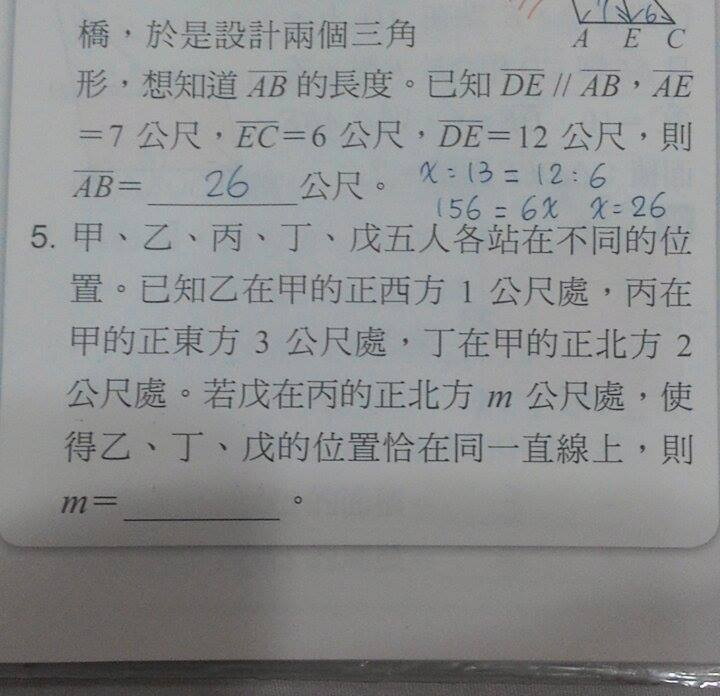 7 6
A E C
橋，於是設計兩個三角
形，想知道 AB 的長度。已知 DE // AB，AE
=7 公尺，EC=6 公尺，DE=12 公尺，則
AB= 26 公尺。 x:13=12:6
156=6x x=26
5. 甲、乙、丙、丁、戊五人各站在不同的位
置。已知乙在甲的正西方 1 公尺處，丙在
甲的正東方 3 公尺處，丁在甲的正北方 2
公尺處。若戊在丙的正北方 m 公尺處，使
得乙、丁、戊的位置恰在同一直線上，則
m= 。